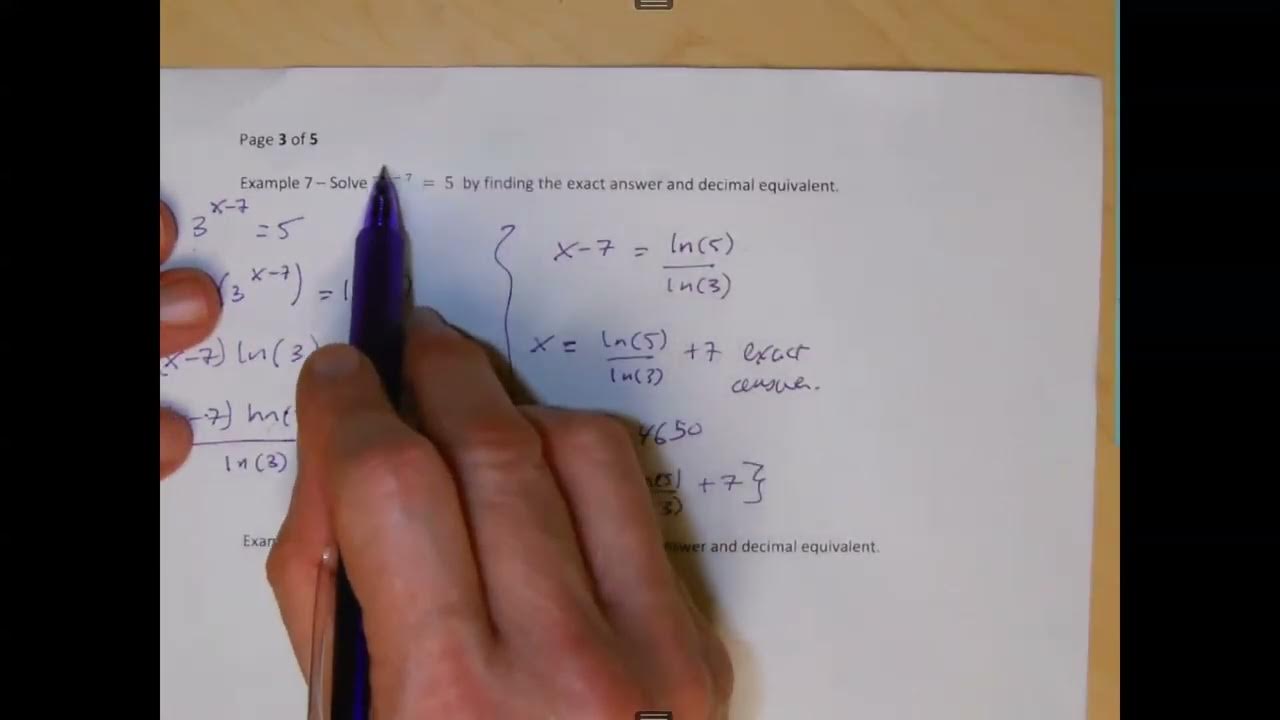 Page 3 of 5
Example 7 – Solve 7 = 5 by finding the exact answer and decimal equivalent.
3^{x-7} = 5
(3^{x-7}) =
x-7) ln(3)
-7)
ln(3)
x-7 = ln(5)/ln(3)
x = ln(5)/ln(3) +7 exact
answer.
4650
+7}
and decimal equivalent.